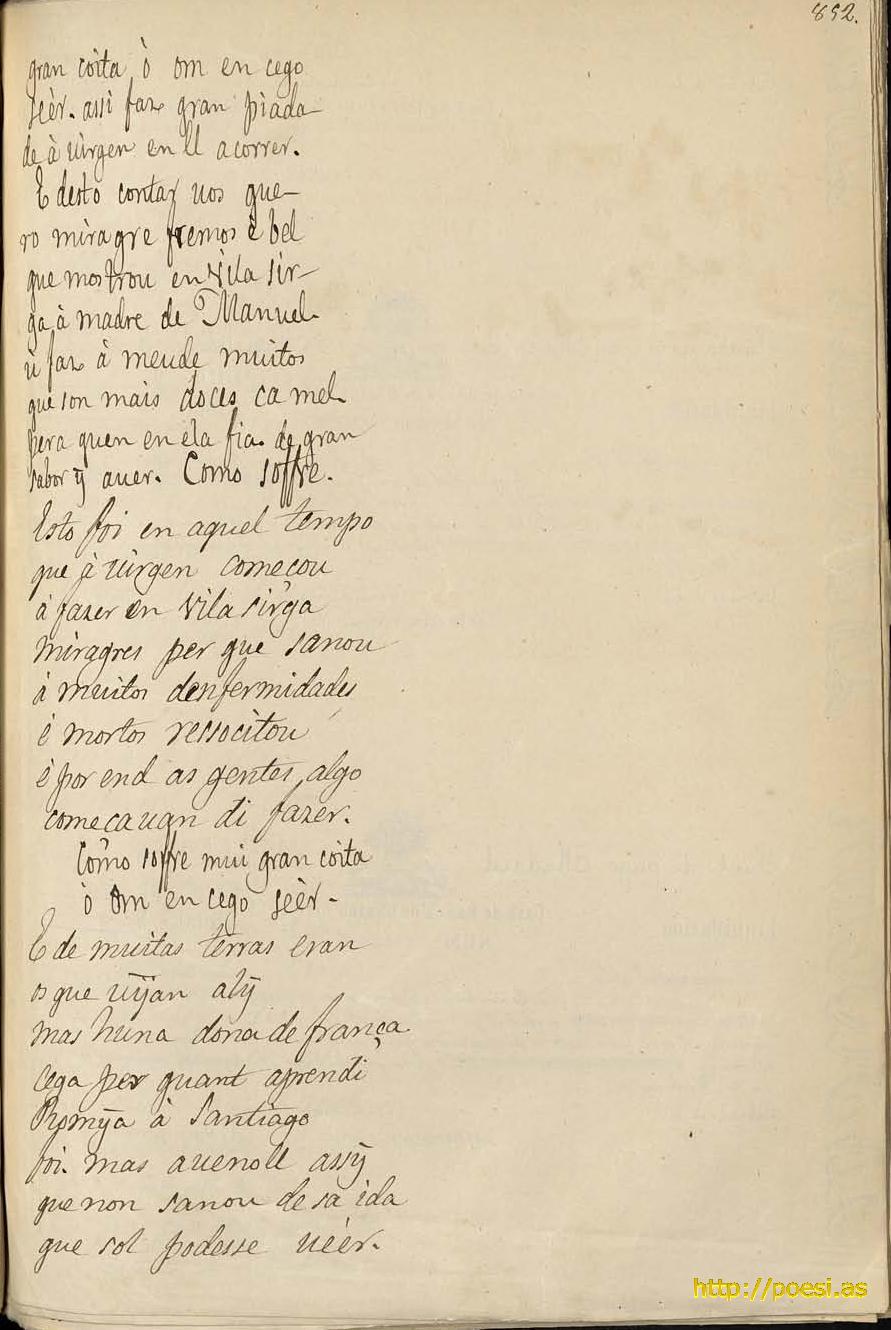 852.
gran còita ò om en cego
seèr. assi faz gran piada
de à uirgen en ll acorrer.
E desto contar uos que-
ro miragre fremos è bel
que mostrou en Vila sir-
ga à madre de Manuel.
ù faz à meude muitos
que son mais doces ca mel
pera quen en ela fia. de gran
sabor ỹ auer. Como soffre.
Esto foi en aquel tempo
que à uirgen começou
à fazer en Vila sirga
miragres per que sanou
à muitos denfermidades
è mortos ressocitou
è por end as gentes algo
começauan di fazer.
Como soffre mui gran còita
ò om en cego seèr.
E de muitas terras eran
os que uỹan alỹ
mas hũna dona de frança
cega per quant aprendi
Romỹa à Santiago
foi. mas auenoll assỹ
que non sanou de sa ida
que sol podesse uéer.
http://poesi.as